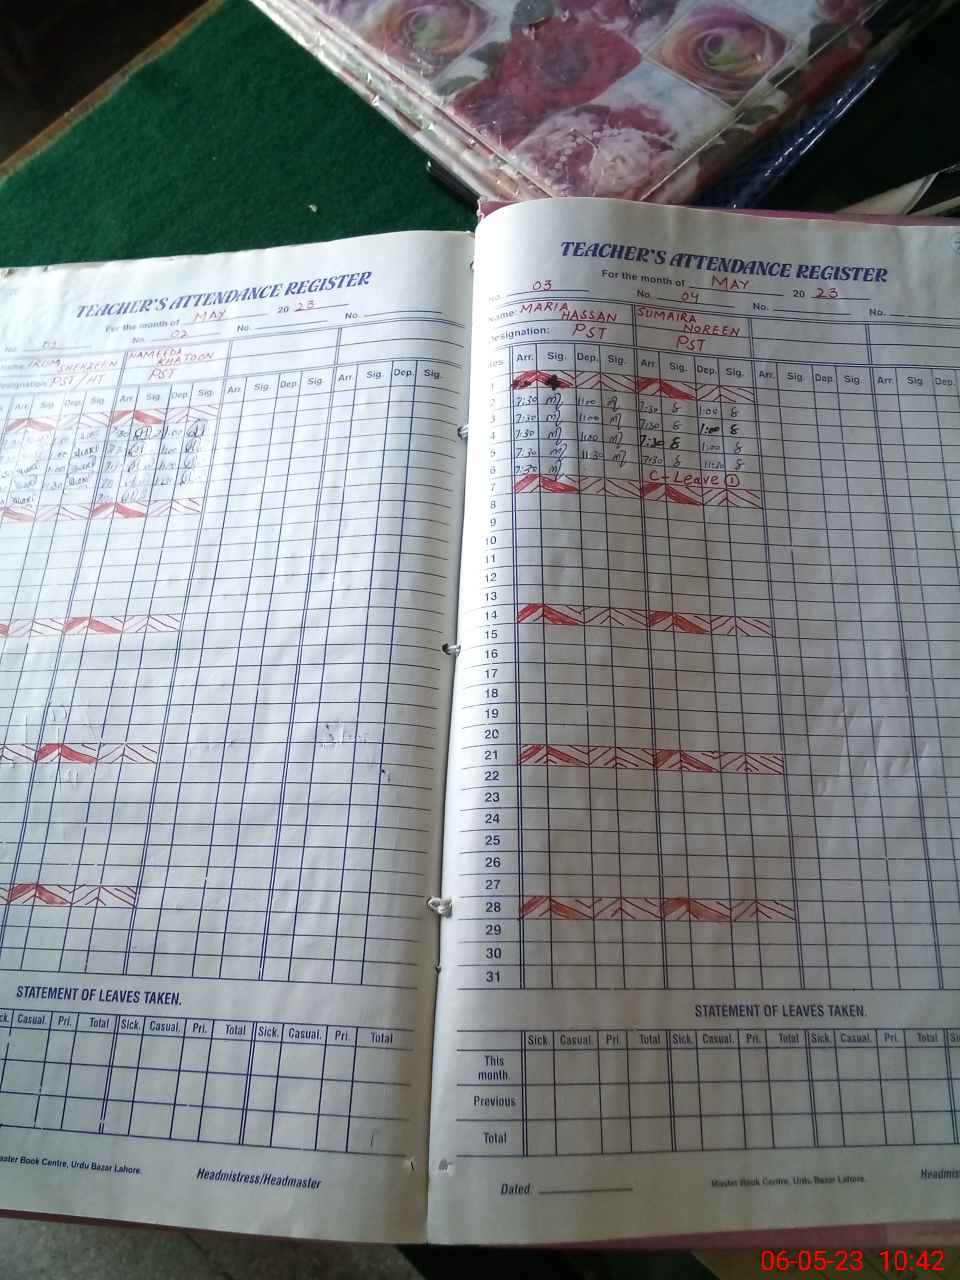 TEACHER'S ATTENDANCE REGISTER
For the month of MAY 20 23
No. 02 No. No.
HAMEEDA
KHATOON
PST/HT PST
Arr. Sig. Dep. Sig. Arr. Sig. Dep. Sig. Arr. Sig. Dep. Sig.
STATEMENT OF LEAVES TAKEN.
Casual. Pri. Total Sick. Casual. Pri. Total Sick. Casual. Pri. Total
Book Centre, Urdu Bazar Lahore.
Headmistress/Headmaster
TEACHER'S ATTENDANCE REGISTER
For the month of MAY 20 23
No. 03 No. 04 No. No.
Name: MARIA HASSAN SUMAIRA NOREEN
Designation: PST PST
Arr. Sig. Dep. Sig. Arr. Sig. Dep. Sig. Arr. Sig. Dep. Sig. Arr. Sig. Dep.
1
2 7:30 11:00 7:30 1:00
3 7:30 11:00 7:30 1:00
4 7:30 1:00 7:30 1:00
5 7:30 11:30 7:30 11:30
6 7:30 C-Leave 1
7
8
9
10
11
12
13
14
15
16
17
18
19
20
21
22
23
24
25
26
27
28
29
30
31
STATEMENT OF LEAVES TAKEN.
Sick. Casual. Pri. Total Sick. Casual. Pri. Total Sick. Casual. Pri. Total
This month.
Previous
Total
Dated:
Master Book Centre, Urdu Bazar Lahore.
06-05-23 10:42